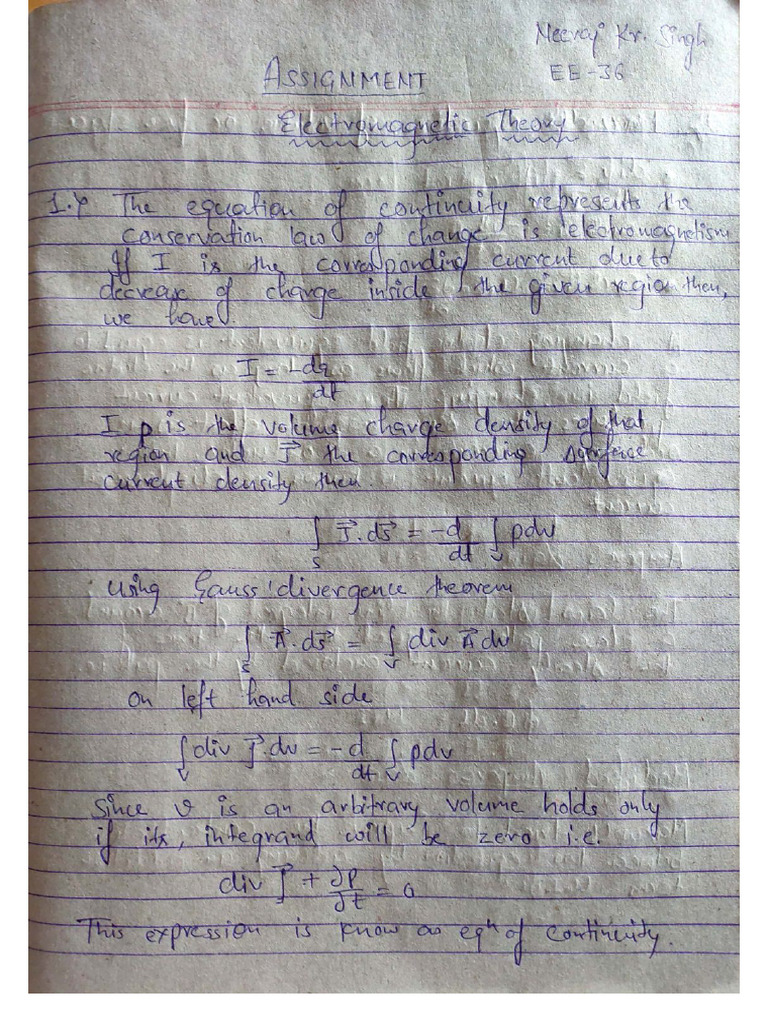 Neeraj Kr. Singh
EE-36
ASSIGNMENT
Electromagnetic Theory
1.> The equation of continuity represents the
conservation law of change is electromagnetism
If I is the corresponding current due to
decrease of charge inside the given region then,
we have.
I = -dq/dt
I ρ is the volume charge density of that
region and J⃗ the corresponding surface
current density then.
∫_S J⃗.ds⃗ = -d/dt ∫_v ρdv
using Gauss' divergence theorem
∫_S A⃗.ds⃗ = ∫_v div A⃗ dv
on left hand side
∫_v div J⃗.dv = -d/dt ∫_v ρdv
Since v is an arbitrary volume holds only
if its, integrand will be zero i.e.
div J⃗ + ∂ρ/∂t = 0
This expression is know as eqⁿ of continuity.